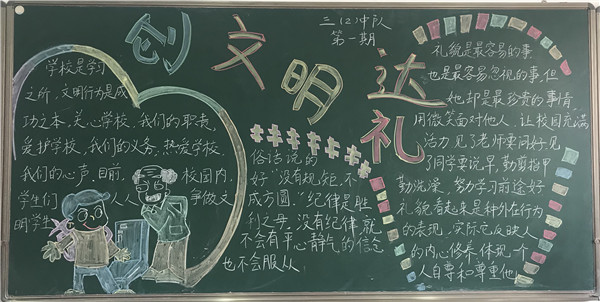 三（2）中队
第一期
创文明达礼
学校是学习
之所，文明行为是成
功之本，关心学校，我们的职责，
爱护学校，我们的义务，热爱学校，
我们的心声，目前，校园内，
学生们人人争做文
明学生
俗话说的
好“没有规矩，不
成方圆”纪律是胜
利之母，没有纪律，就
不会有平心静气的信念
也不会服从
礼貌是最容易的事
也是最容易忽视的事，但
她却是最珍贵的事情
用微笑面对他人，让校园充满
活力，见了老师要问好，见
了同学要说早，勤剪指甲
勤洗澡，努力学习前途好
礼貌看起来是种外在行为
的表现，实际它反映人
的内心修养，体现一个
人自尊和尊重他